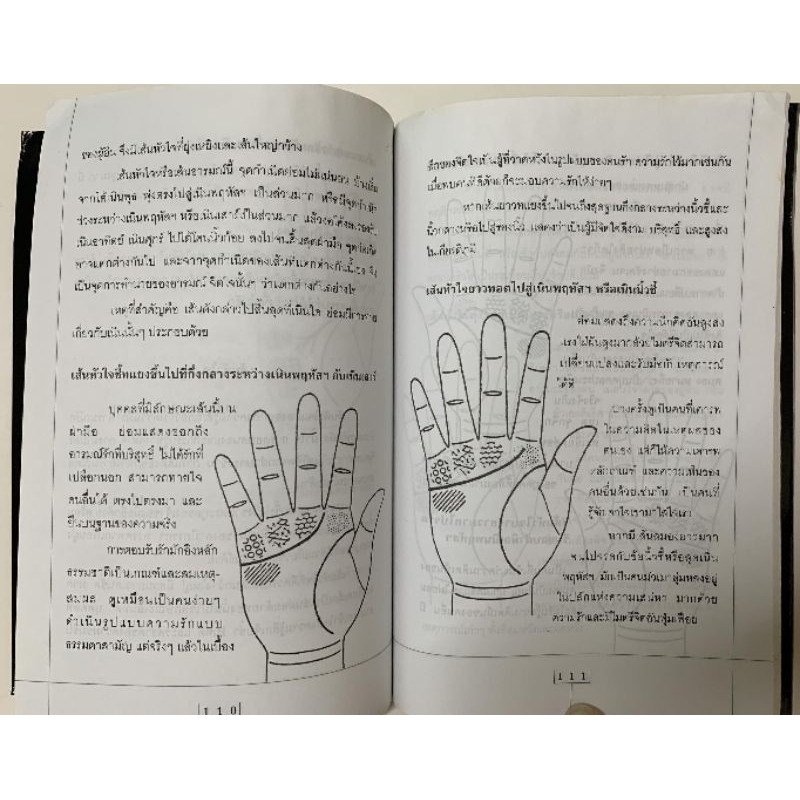 ของผู้อื่น จึงมีเส้นหัวใจที่ยุ่งเหยิงและเส้นใหญ่กว้าง
เส้นหัวใจหรือเส้นอารมณ์นี้ จุดกำเนิดย่อมไม่แน่นอน บ้างเริ่ม
จากใต้เนินพุธ พุ่งตรงไปสู่เนินพฤหัสฯ เป็นส่วนมาก หรือมีจุดกำเนิด
ช่วงระหว่างเนินพฤหัสฯ หรือ เนินเสาร์เป็นส่วนมาก แล้ว
เนินอาทิตย์ เนินศุกร์ ไปใต้โคนนิ้วก้อย ลงไปจนสิ้นสุดฝ่ามือ
อาจแตกต่างกันไป และจากจุดกำเนิดของเส้นที่แตกต่างกันนี้เอง จึง
เป็นจุดการทำนายของอารมณ์ จิตใจนั้นๆ ว่าแตกต่างกันอย่างไร
เหตุที่สำคัญคือ เส้นดังกล่าวไปสิ้นสุดที่เนินใด ย่อมมีการทาย
เกี่ยวกับเนินนั้นๆ ประกอบด้วย
เส้นหัวใจชี้ทแยงขึ้นไปที่กึ่งกลางระหว่างเนินพฤหัสฯ กับเนินเสาร์
บุคคลที่มีลักษณะเส้นนี้บน
ฝ่ามือ ย่อมแสดงออกถึง
อารมณ์รักที่บริสุทธิ์ ไม่ได้รักที่
เปลือกนอก สามารถทายใจ
คนอื่นได้ ตรงไปตรงมา และ
ยืนบนฐานของความจริง
การตอบรับรักมักอิงหลัก
ธรรมชาติเป็นเกณฑ์และสมเหตุ-
สมผล ดูเหมือนเป็นคนง่ายๆ
ดำเนินรูปแบบความรักแบบ
ธรรมดาสามัญ แต่จริงๆ แล้วในเบื้อง
110
ลึกของจิตใจเป็นผู้ที่วาดหวังในรูปแบบของคนรัก ความรักไว้มากเช่นกัน
เมื่อพบคนที่ดีด้วยก็จะมอบความรักให้ง่ายๆ
หากเส้นยาวทแยงขึ้นไปจนถึงสุดฐานกึ่งกลางระหว่างนิ้วชี้และ
นิ้วกลางหรือไปสู่ของนิ้ว แสดงว่าเป็นผู้มีจิตใจดีงาม บริสุทธิ์ และสูงส่ง
ในเกียรติภูมิ
เส้นหัวใจยาวทอดไปสู่เนินพฤหัสฯ หรือเนินนิ้วชี้
ย่อมแสดงถึงความนึกคิดอันสูงส่ง
แรงใฝ่ฝันสูงมากด้วยไมตรีจิตสามารถ
เปลี่ยนแปลงและรับมือกับ เหตุการณ์
ได้ดี
บางครั้งดูเป็นคนที่เคารพ
ในความคิดในเหตุผลของ
ตนเอง แต่ก็ให้ความเคารพ
หลักเกณฑ์ และความเห็นของ
คนอื่นด้วยเช่นกัน เป็นคนที่
รู้จักเอาใจเขามาใส่ใจเรา
หากมี เส้นสมองยาวมาก
จนไปจรดกับข้อนิ้วชี้หรือสุดเนิน
พฤหัสฯ มักเป็นคนมัวเมาลุ่มหลงอยู่
ในปลักแห่งความเสน่หา มากด้วย
ความรักและมีไมตรีจิตอันฟุ่มเฟือย
111